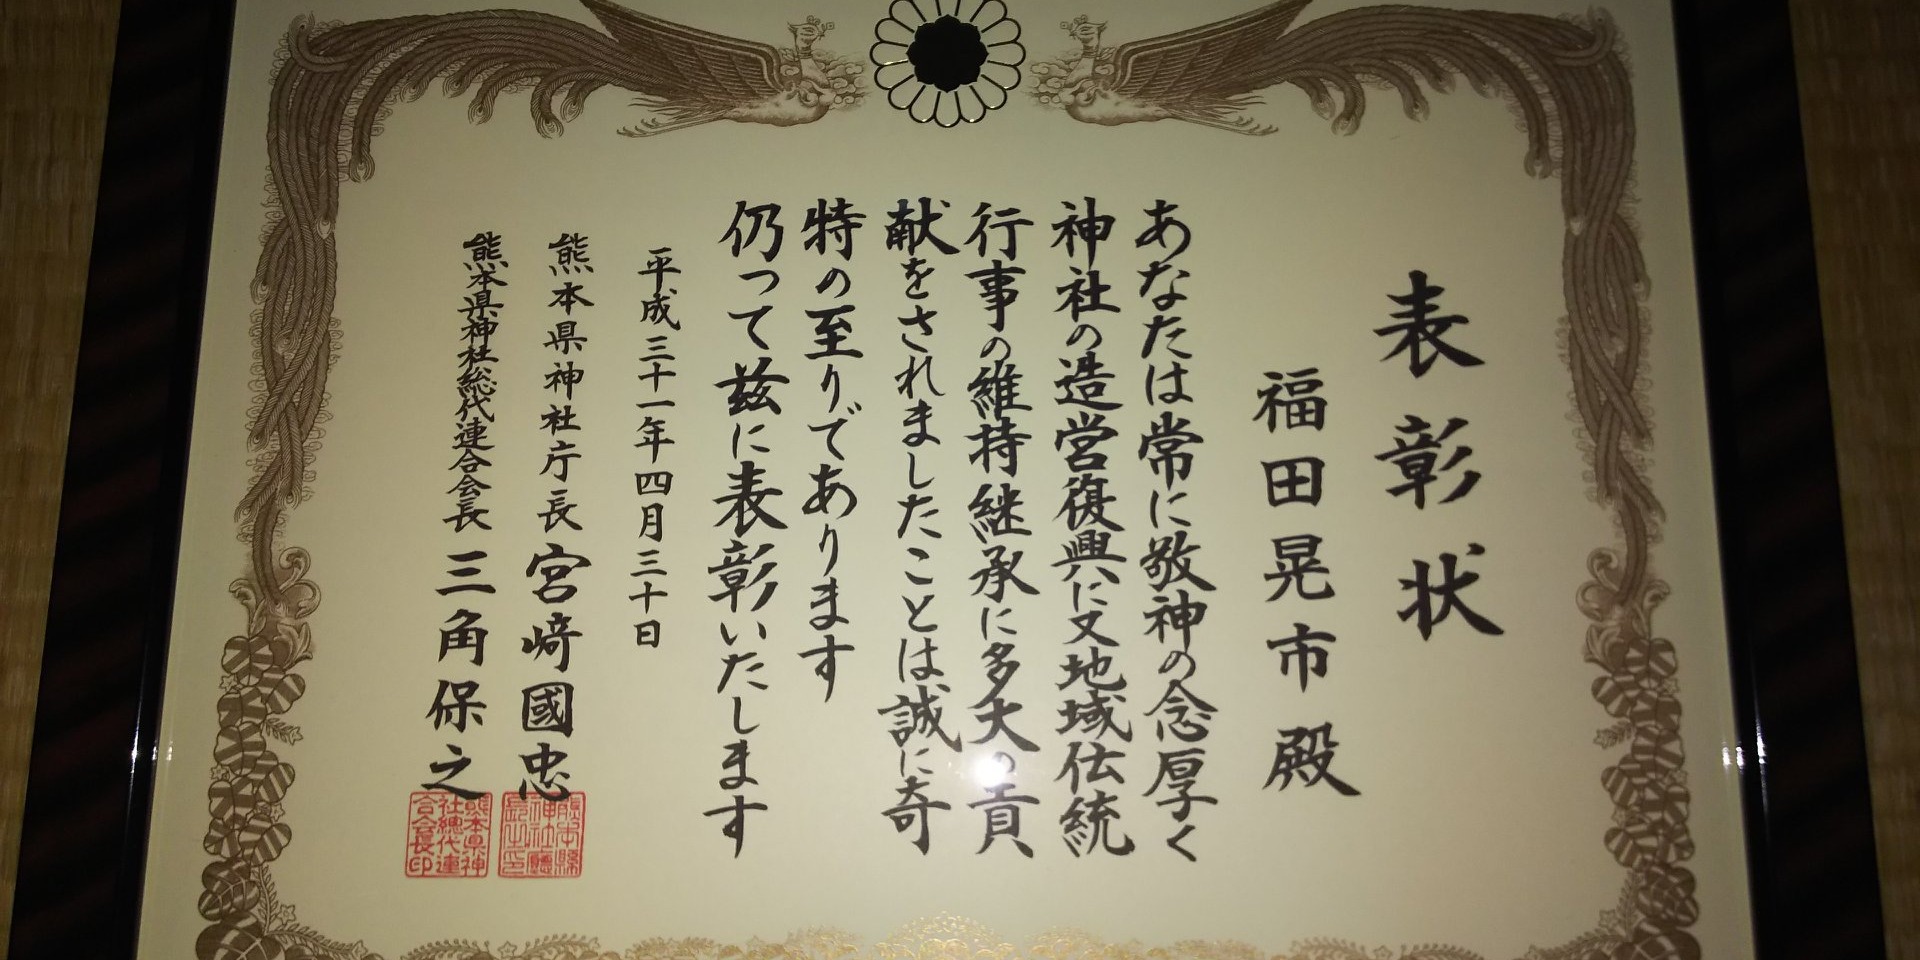 表彰状
福田晃市殿
あなたは常に敬神の念厚く
神社の造営復興に又地域伝統
行事の維持継承に多大の貢
献をされましたことは誠に奇
特の至りであります
仍って茲に表彰いたします
平成三十一年四月三十日
熊本県神社庁長 宮﨑國忠
熊本県神社総代連合会長 三角保之
熊本縣
神社廳
長之印
熊本県神
社總代連
合会長印